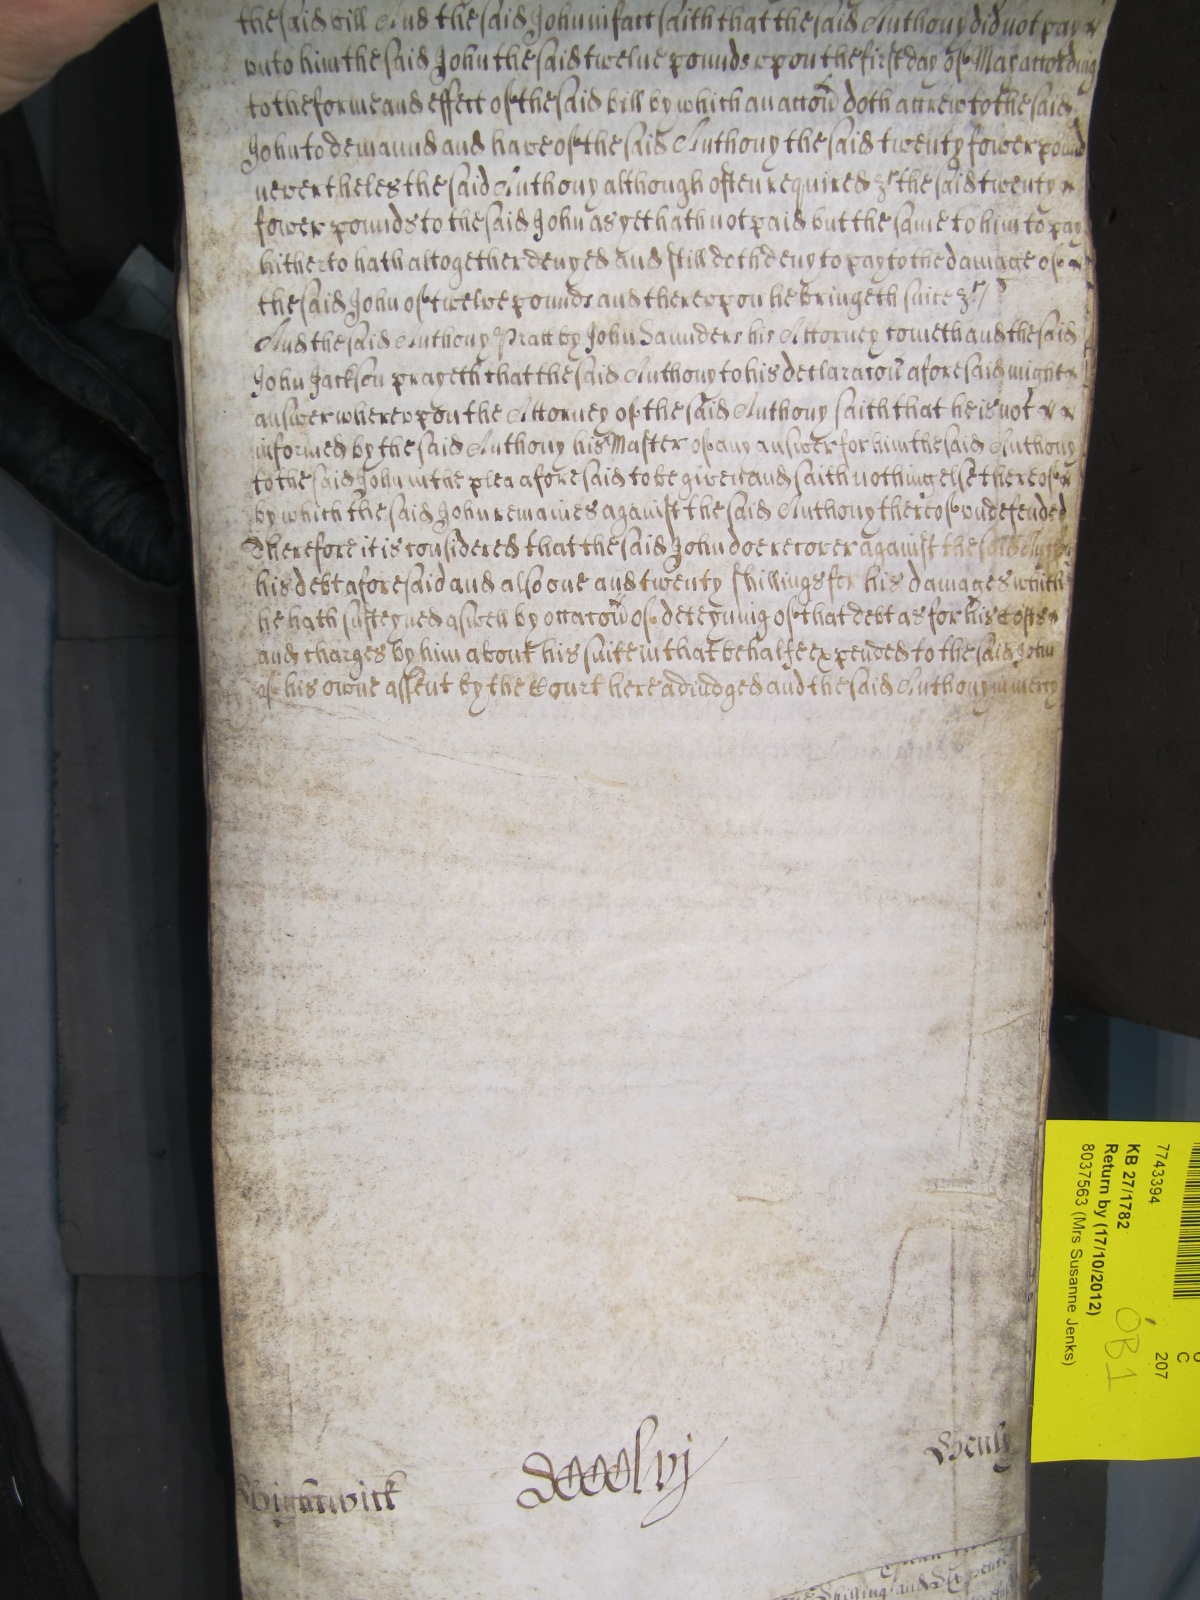 the said bill And the said John in fact saith that the said Anthony did not pay
unto him the said John the said twelve pounds upon the first day of May according
to the forme and effect of the said bill by which an accoñ doth accrew to the said
John to demaund and have of the said Anthony the said twenty fower pound
nevertheles the said Anthony although often required &c the said twenty
fower pounds to the said John as yet hath not paid but the same to him to pay
hitherto hath altogether denyed and still doth deny to pay to the damage of
the said John of twelve pounds and thereupon he bringeth suite &c
And the said Anthony Pratt by John Saunders his Attorney cometh and the said
John Jackson prayeth that the said Anthony to his declaracoñ aforesaid might
answer whereupon the Attorney of the said Anthony saith that he is not
informed by the said Anthony his Master of any answer for him the said Anthony
to the said John in the plea aforesaid to be given and saith nothing else thereof
by which the said John remaines against the said Anthony thereof undefended
Therefore it is considered that the said John doe recover against the said Anthony
his debt aforesaid and also one and twenty shillings for his damages which
he hath susteyned aswell by occacoñ of deteyning of that debt as for his costs
and charges by him about his suite in that behalfe expended to the said John
of his owne assent by the Court here adiudged and the said Anthony in mercy
Wightwick
Dccclvj
Henly
Shilling and
7743394
KB 27/1782
Return by (17/10/2012)
8037563 (Mrs Susanne Jenks)
C
207
OB1